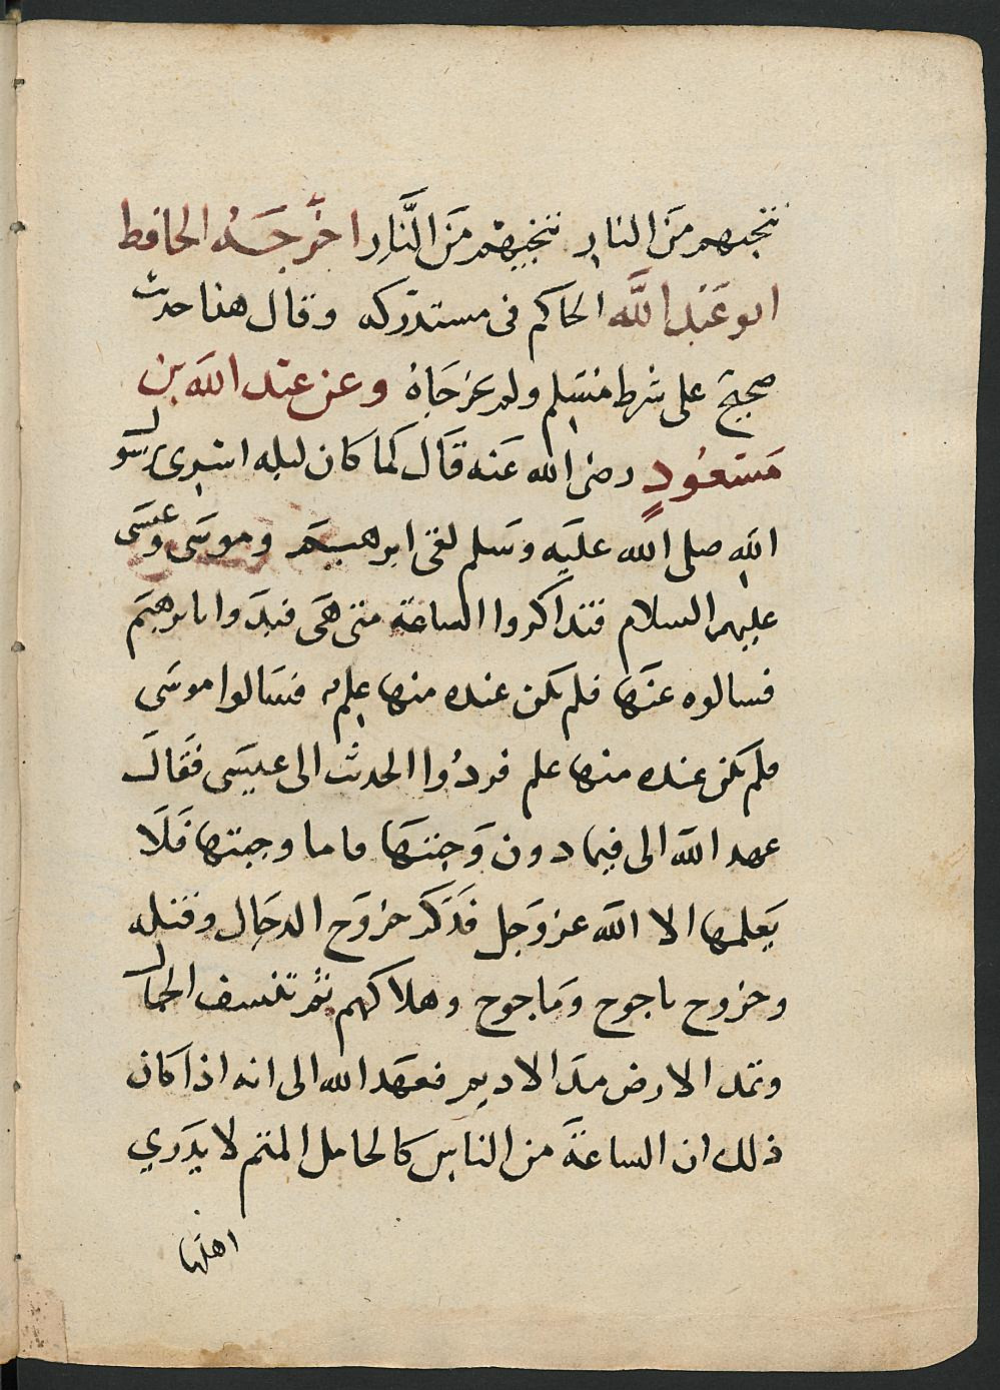 ننجيهم من النار ننجيهم من النار اخرجه الحافظ
ابو عبد الله الحاكم فى مستدركه وقال هذا حديث
صحيح على شرط مسلم ولم يخرجاه وعن عبد الله بن
مسعود رضى الله عنه قال لما كان ليله اسرى برسول
الله صلى الله عليه وسلم لقى ابرهيم وموسى وعيسى
عليهم السلام فتذاكروا الساعة متى هى فبدوا بابرهيم
فسالوه عنها فلم يكن عنده منها علم فسالوا موسى
فلم يكن عنده منها علم فردوا الحديث الى عيسى فقال
عهد الله الى فيما دون وجبتها فاما وجبتها فلا
يعلمها الا الله عز وجل فذكر خروج الدجال وقتله
وخروج ياجوج وماجوج وهلاكهم ثم تنسف الجبال
وتمد الارض مد الاديم فعهد الله الى انه اذا كان
ذلك ان الساعة من الناس كالحامل المتم لا يدري
اهلها